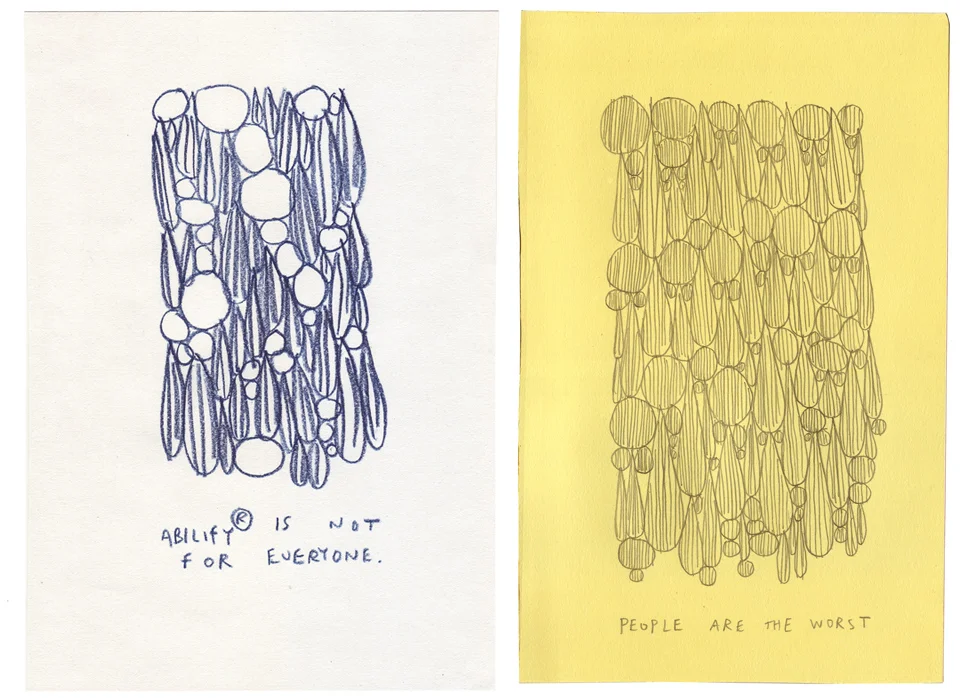 ABILIFY® IS NOT
FOR EVERYONE.
PEOPLE ARE THE WORST